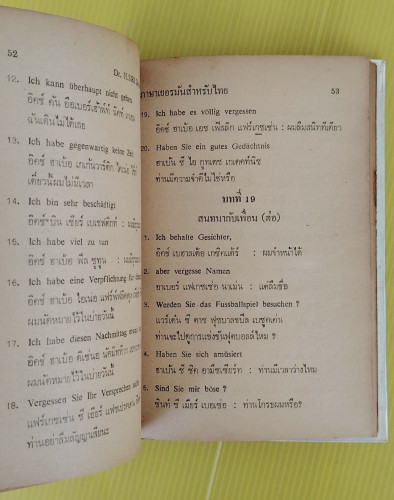 52
Dr. ILSE
12. Ich kann überhaupt nicht gehen
อิคช์ คัน อือเบอร์เฮ้าพท์ นิคท์
ฉันเดินไม่ได้เลย
13. Ich habe gegenwärtig keine Zeit
อิคช์ ฮาเบ้อ
เดี๋ยวนี้ผมไม่มีเวลา
14. Ich bin sehr beschäftigt
อิคช์ บิน เซ่อร์ เบเชฟทิกท์ :
15. Ich habe viel zu tun
อิคช์ ฮาเบ้อ ฟีล ซูทูน :
16. Ich habe eine Verpflichtung für
อิคช์ ฮาเบ้อ ไอเนอ
ผมมีนัดหมายไว้ในบ่ายวันนี้
17. Ich habe diesen Nachmittag
อิคช์ ฮาเบ้อ ดีเซ่น
ผมมีนัดหมายไว้ในบ่ายวันนี้
18. Vergessen Sie Ihr Versprechen nicht
แฟร์เกซเซ่น ซี เอียร์
ท่านอย่าลืมสัญญาเสียนะ
ภาษาเยอรมันสำหรับไทย 53
19. Ich habe es völlig vergessen
อิคช์ ฮาเบ้อ เอซ เฟิ่ลลิก แฟร์เกซเซ่น : ผมลืมสนิททีเดียว
20. Haben Sie ein gutes Gedächtnis
ฮาเบ้น ซี ไอ กูทเตซ เกเดคท์นีซ
ท่านมีความจำดีไม่ใช่หรือ
บทที่ 19
สนทนากับเพื่อน (ต่อ)
1. Ich behalte Gesichter,
อิคช์ เบฮาลเต้อ เกซิคเต้อร์ : ผมจำหน้าได้
2. aber vergesse Namen
อาเบอร์ แฟร์เกซเซ่อ นาเม่น : แต่ลืมชื่อ
3. Werden Sie das Fussballspiel besuchen ?
แวร์เด้น ซี ดาซ ฟุซบาลชบีล เบซูคเค่น
ท่านจะไปดูการแข่งขันฟุตบอลล์ไหม ?
4. Haben Sie sich amüsiert
ฮาเบ้น ซี ซิค อามืซเซียร์ท : ท่านมีเวลาว่างไหม
5. Sind Sie mir böse ?
ซินท์ ซี เมียร์ เบอเซ่อ : ท่านโกรธผมหรือ?